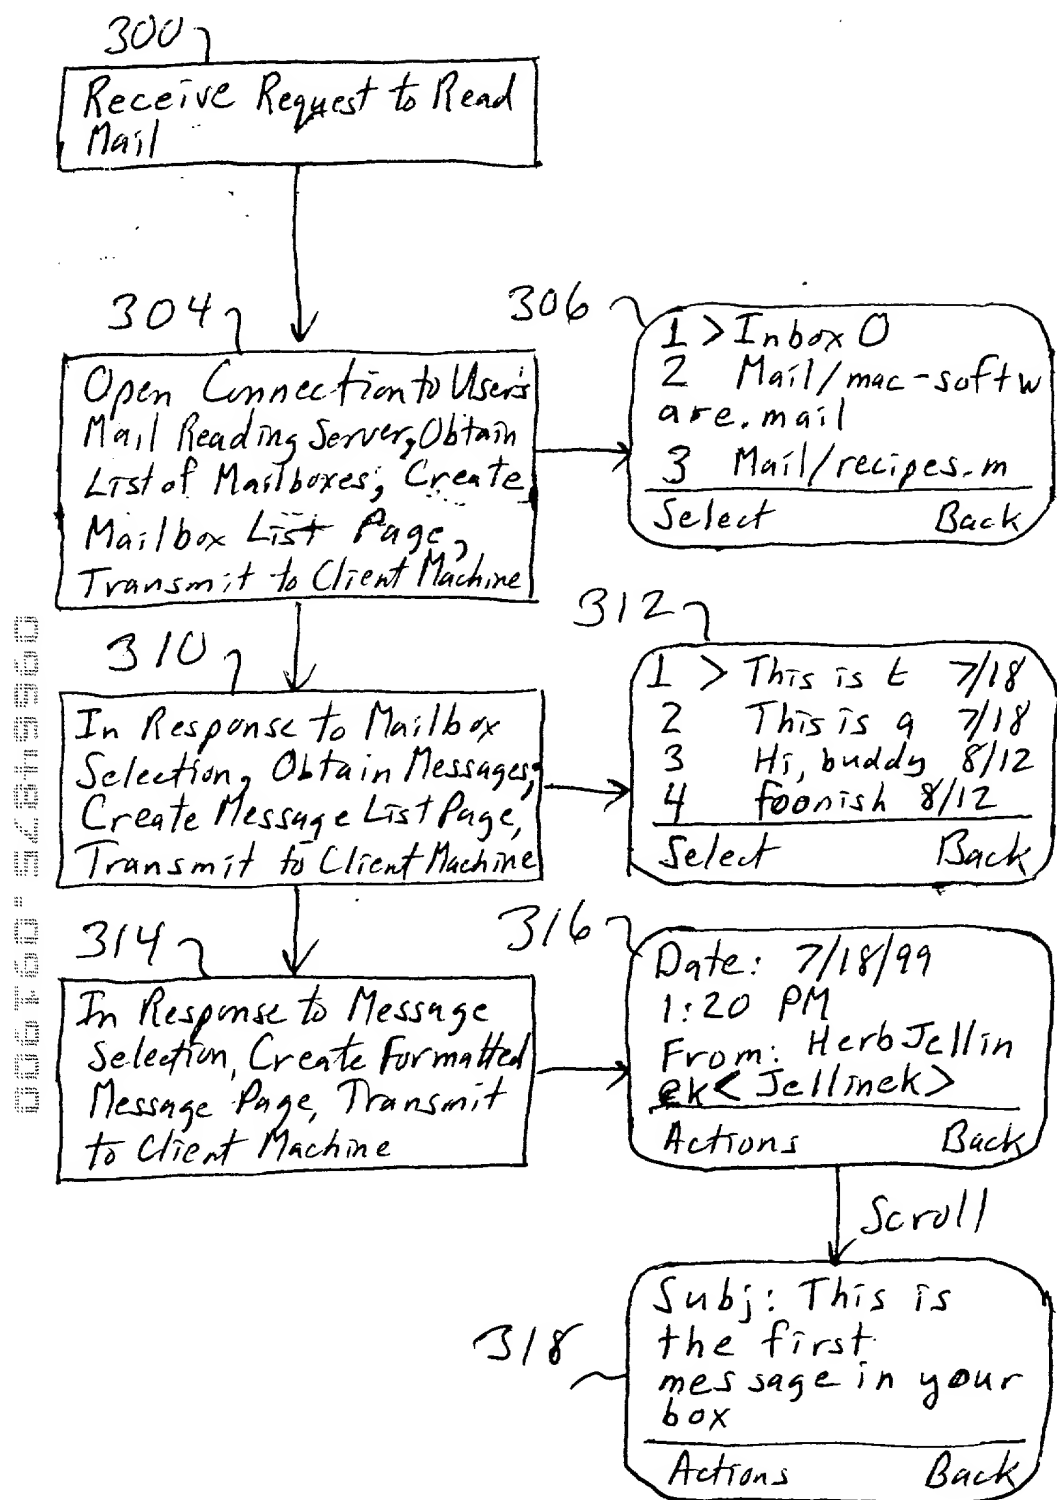 300
Receive Request to Read
Mail
304
Open Connection to User's
Mail Reading Server, Obtain
List of Mailboxes, Create
Mailbox List Page,
Transmit to Client Machine
306
1 > Inbox O
2 Mail/mac-softw
are.mail
3 Mail/recipes.m
Select Back
310
In Response to Mailbox
Selection, Obtain Messages,
Create Message List Page,
Transmit to Client Machine
312
1 > This is t 7/18
2 This is a 7/18
3 Hi, buddy 8/12
4 foonish 8/12
Select Back
314
In Response to Message
Selection, Create Formatted
Message Page, Transmit
to Client Machine
316
Date: 7/18/99
1:20 PM
From: Herb Jellin
ek< Jellinek>
Actions Back
Scroll
318
Subj: This is
the first
message in your
box
Actions Back